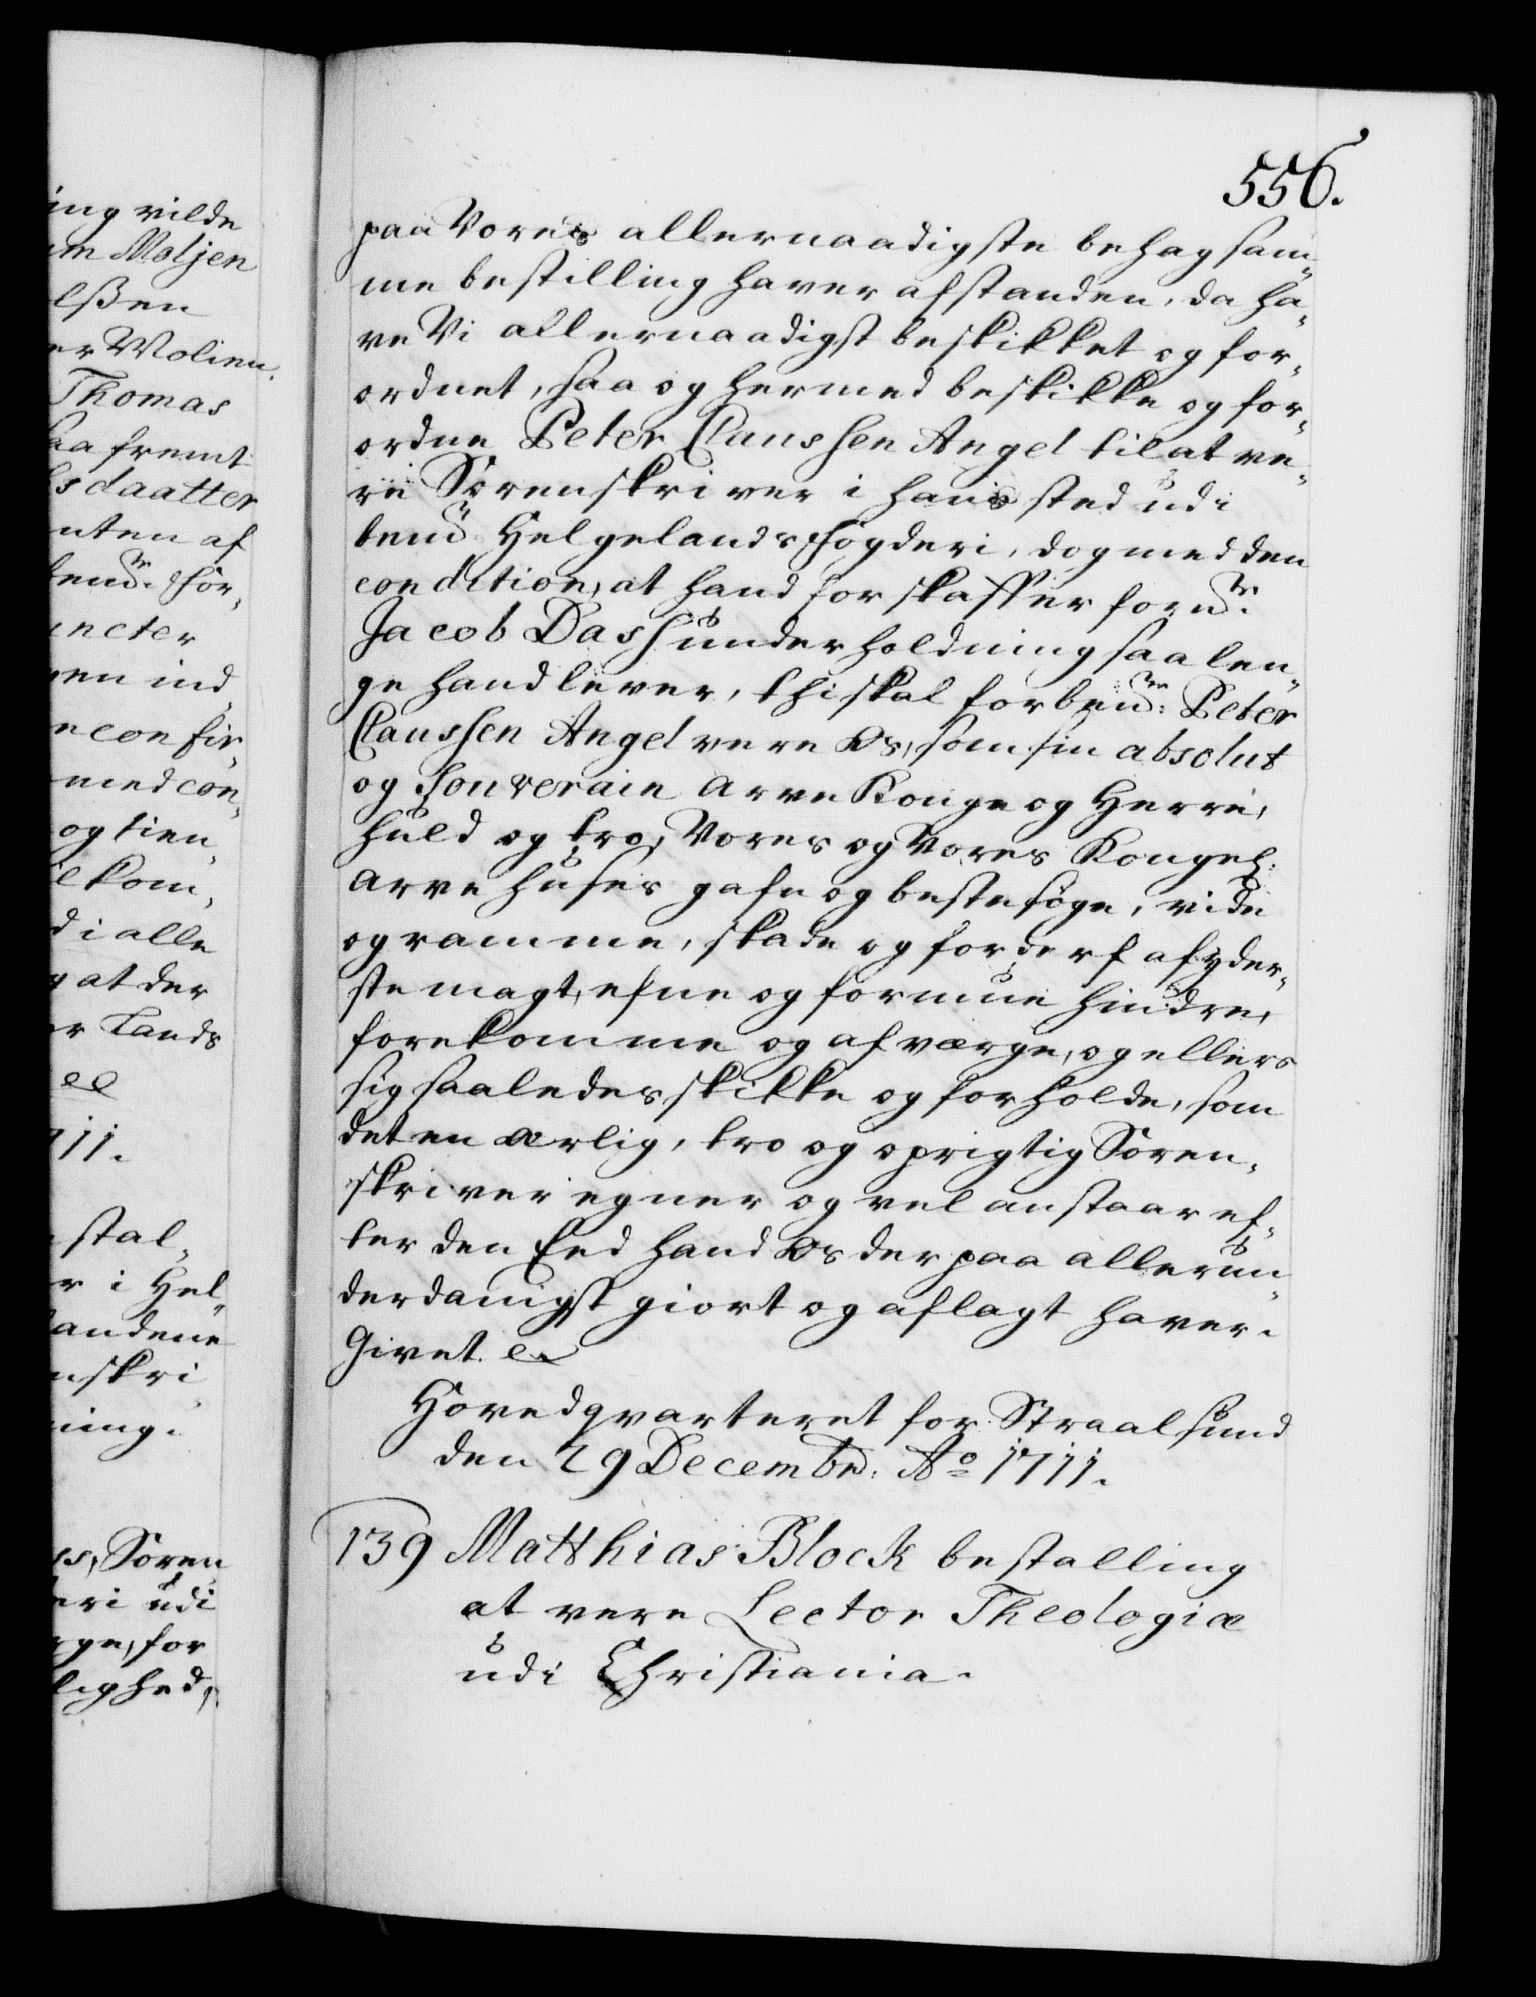 ing vilde
um Moljen
elßen
er Wolien.
Thomas
saa fremt
Isdaatter
enten af
bemte. for„
uncter
gen ind
e confir„
med con„
og tien„
e kom„
d i alle
g at der
er Lands
ee
1711.
stal„
er i Hel„
andene
nskri
ning.
ss, Soren
eri udi
ge, for
lighed,
556.
paa Vores allernaadigste behag sam„
me bestilling haver afstanden, da ha„
ve Vi allernaadigst beskikket og for„
ordnet, saa og hermed beskikke og for„
ordne Peter Claussen Angel til at ve„
re Sorenskriver i hans sted udi
bemte Helgelands fogderi, dog med den
condition, at hand forskaffer fornte.
Jacob Dass underholdning saa len„
ge hand lever, thi skal forbemte: Peter
Claussen Angel vere Os, som sin absolut
og souverain Arve Konge og Herre,
huld og tro, Vores og Vores Kongel:
Arve Huses gafn og beste søge, vide
og ramme, skade og forderf af yder„
ste magt, efne og formue hindre,
forekomme og afværge, og ellers
sig saaledes skikke og forholde, som
det en ærlig, tro og oprigtig Soren„
skriver egner og vel anstaar ef„
ter den Eed hand Os der paa allerun„
derdanigst giort og aflagt haver.
Givet. e
Hovedqvarteret for Straalsund
den 29 Decembr: Ao 1711.
139 Matthias Block bestalling
at vere Lector Theologiæ
udi Christiania.